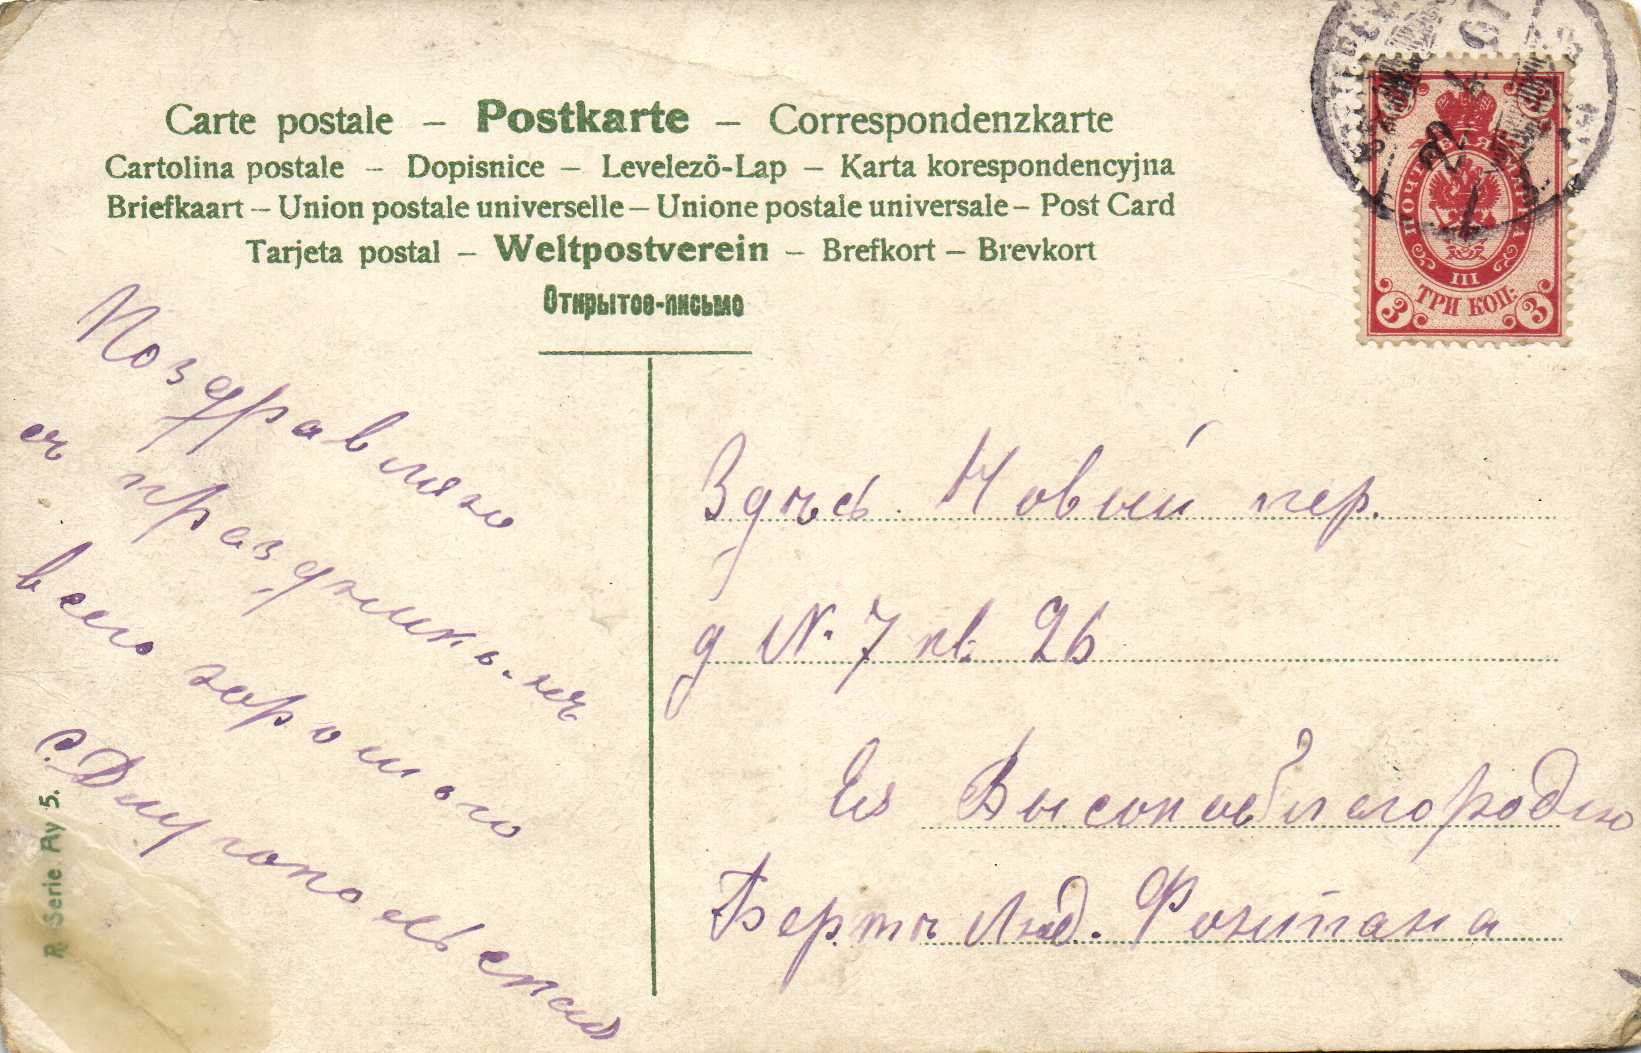 Carte postale – Postkarte – Correspondenzkarte
Cartolina postale – Dopisnice – Levelezö-Lap – Karta korespondencyjna
Briefkaart – Union postale universelle – Unione postale universale – Post Card
Tarjeta postal – Weltpostverein – Brefkort – Brevkort
Открытое-письмо
ПОЧТОВАЯ МАРКА
III
3 ТРИ КОП. 3
Поздравляю
съ праздникомъ
всего хорошаго
R Serie Ry 5.
Здѣсь Новый пер.
д N. 7 кв. 26
Ея Высокоблагородію
Бертѣ Люд. Фонтана